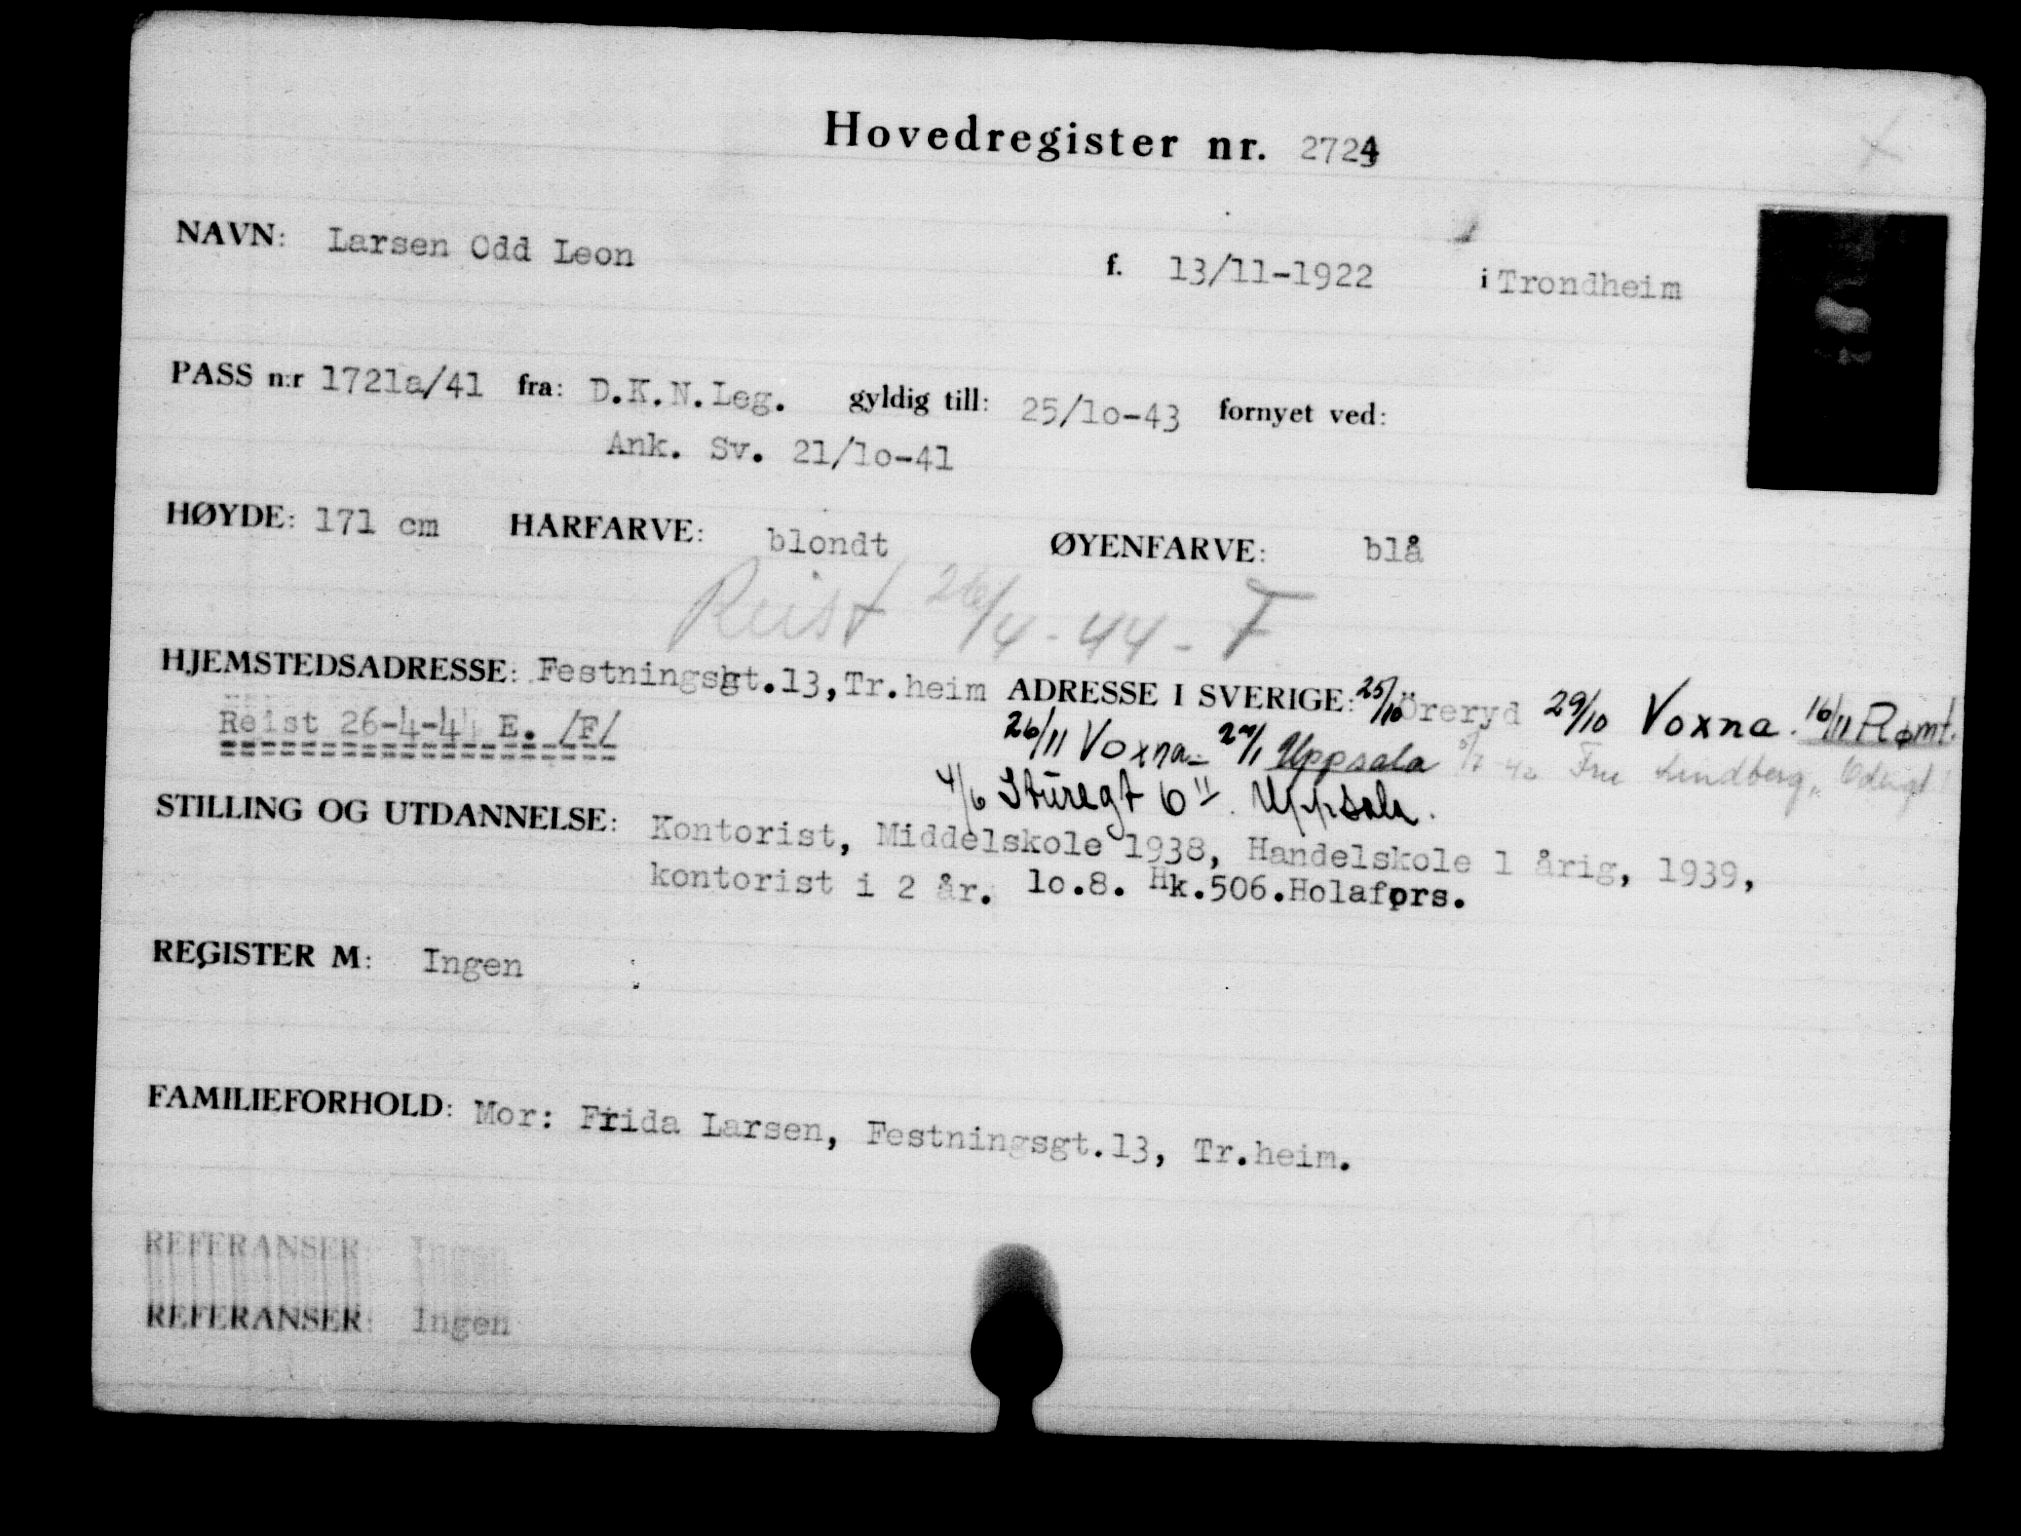 Hovedregister nr. 2724
NAVN: Larsen Odd Leon f. 13/11-1922 i Trondheim
PASS n:r 1721a/41 fra: D.K.N.Leg. gyldig till: 25/lo-43 fornyet ved:
Ank. Sv. 21/lo-41
HØYDE: 171 cm HARFARVE: blondt ØYENFARVE: blå
Reist 26/4-44-F
HJEMSTEDSADRESSE: Festningsgt.13,Tr.heim ADRESSE I SVERIGE: 25/10 Öreryd 29/10 Voxna. 16/11 Rømt.
Reist 26-4-44 E. /F/ 26/11 Voxna- Uppsala Fru Lindberg,
4/6 Sturegt 6 II. Uppsala.
STILLING OG UTDANNELSE: Kontorist, Middelskole 1938, Handelskole 1 årig, 1939,
kontorist i 2 år. lo.8. Hk.506.Holafors.
REGISTER M: Ingen
FAMILIEFORHOLD: Mor: Frida Larsen, Festningsgt.13, Tr.heim.
REFERANSER: Ingen
REFERANSER: Ingen